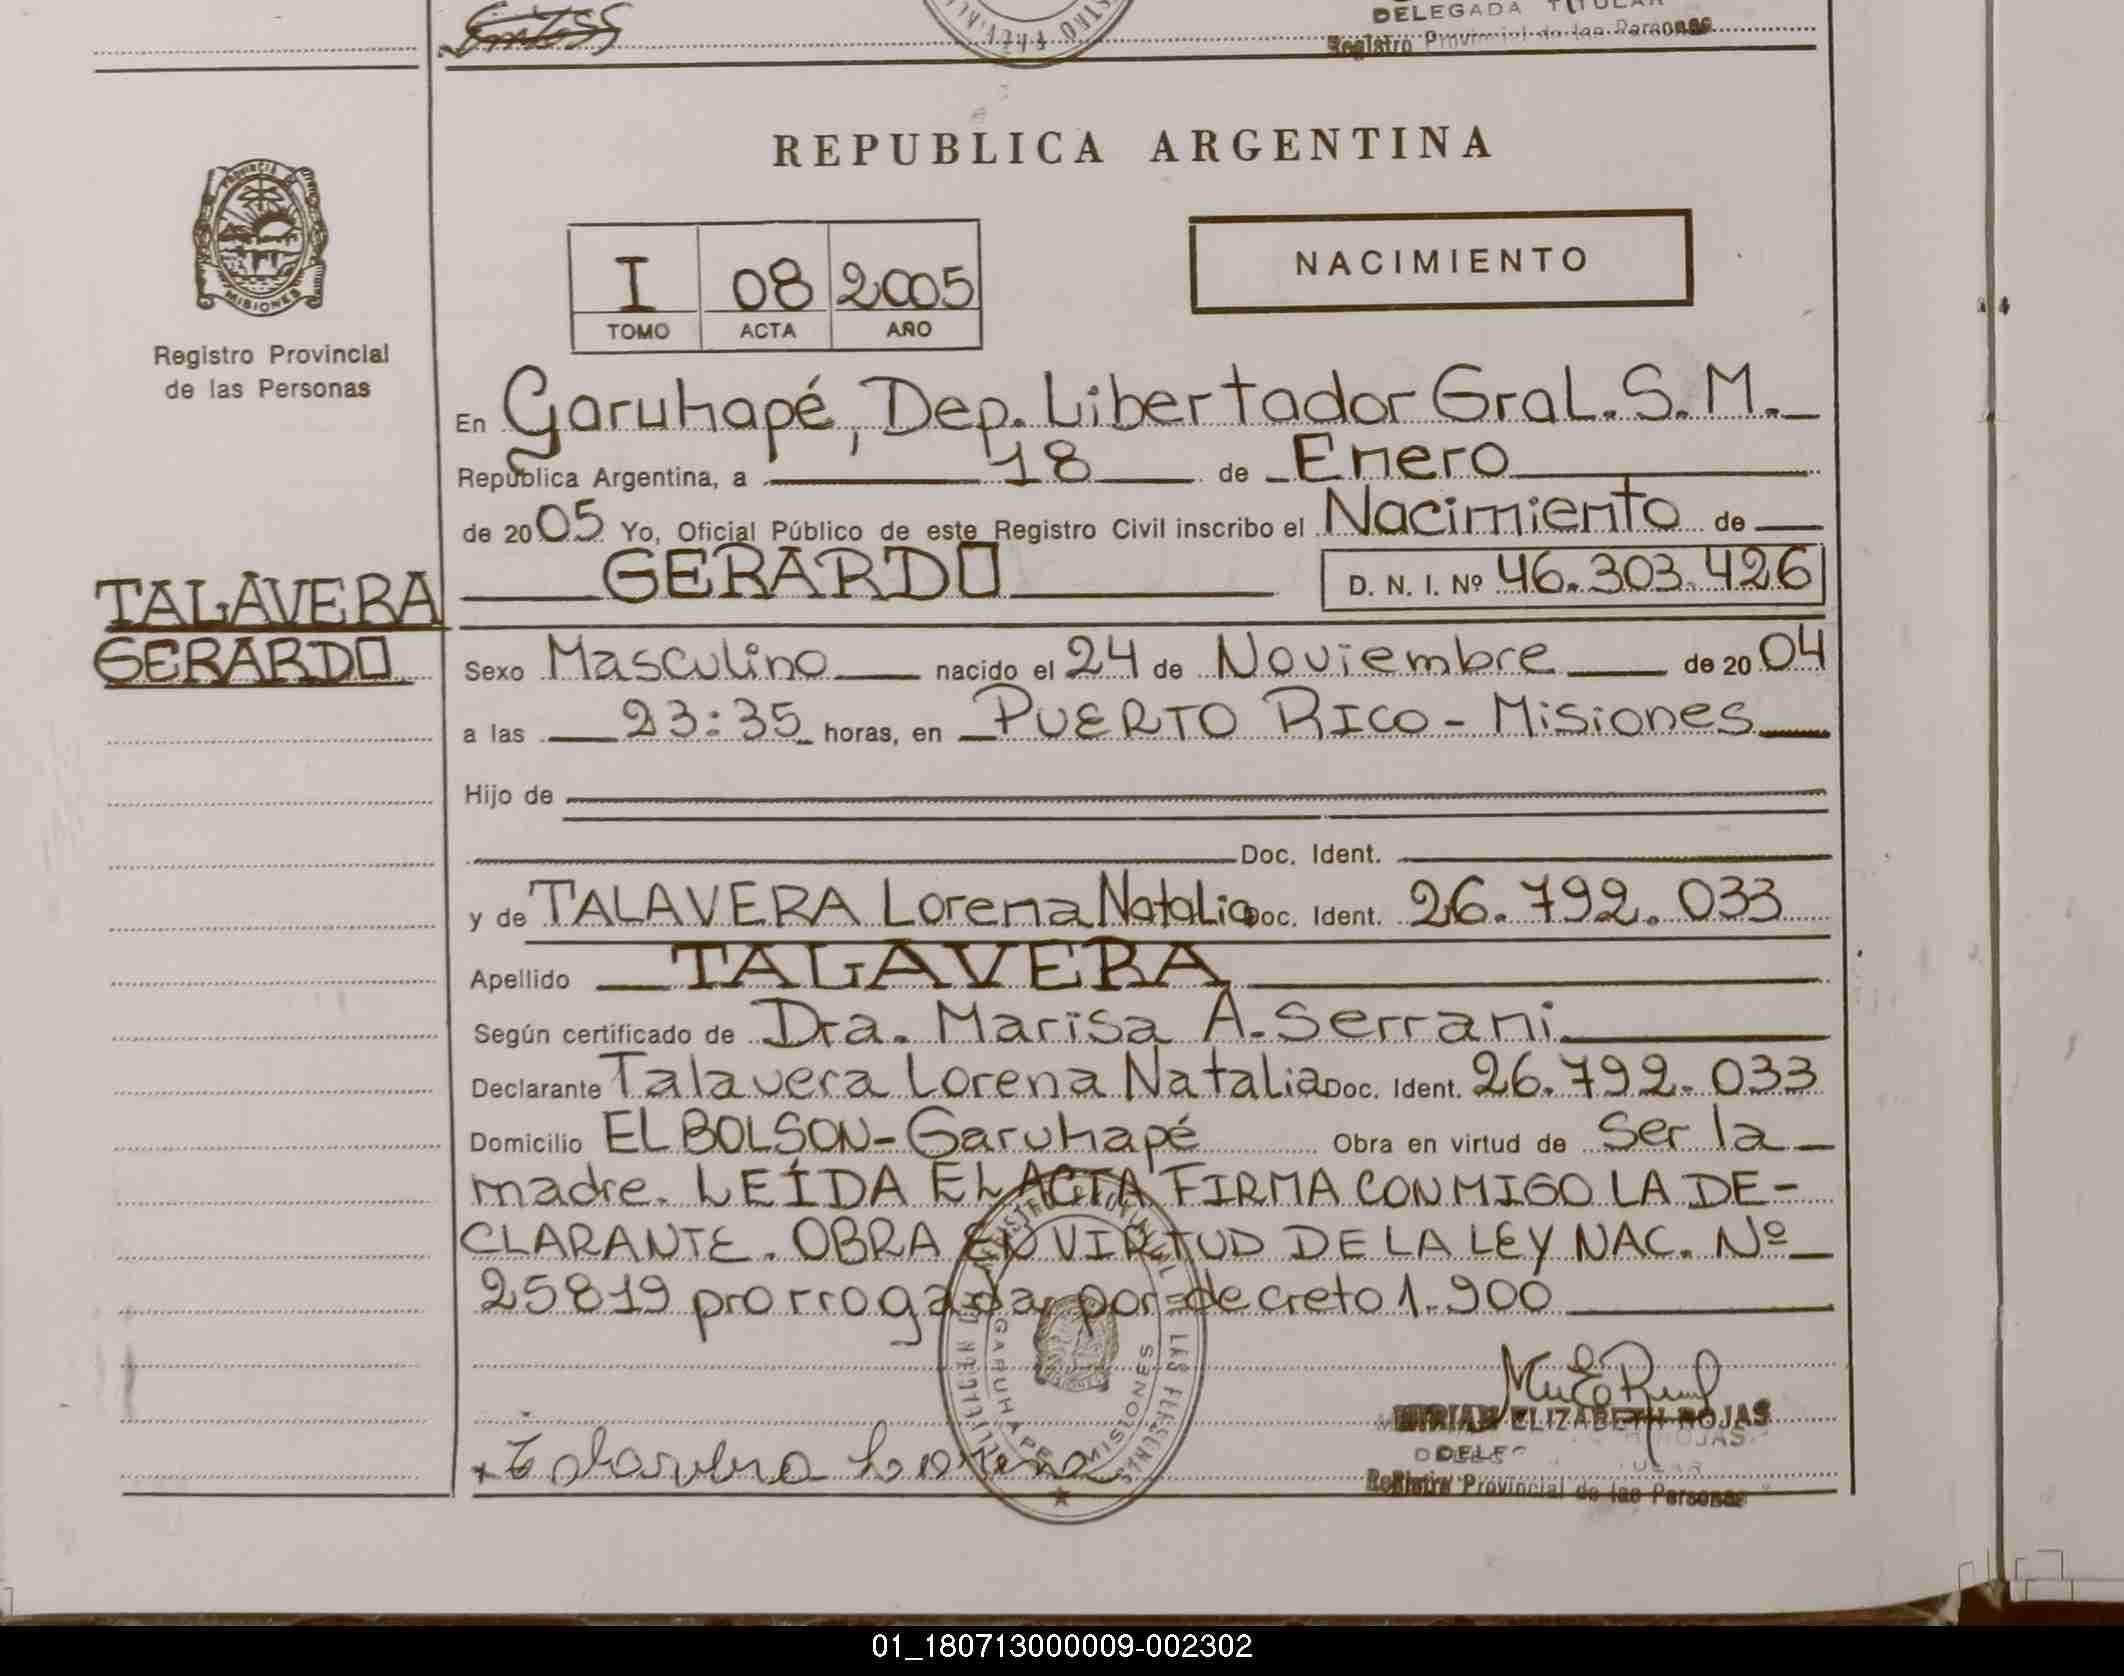 DELEGADA TITULAR
Registro Provincial de las Personas
REPUBLICA ARGENTINA
PROVINCIA DE MISIONES
Registro Provincial
de las Personas
I 08 2005
TOMO ACTA AÑO
NACIMIENTO
En Garuhapé, Dep. Libertador Gral. S. M.
República Argentina, a 18 de Enero
de 2005 Yo, Oficial Público de este Registro Civil inscribo el Nacimiento de
GERARDO D. N. I. Nº 46.303.426
TALAVERA
GERARDO
Sexo Masculino nacido el 24 de Noviembre de 2004
a las 23:35 horas, en PUERTO RICO - Misiones
Hijo de
Doc. Ident.
y de TALAVERA Lorena Natalia Doc. Ident. 26.792.033
Apellido TALAVERA
Según certificado de Dra. Marisa A. Serrani
Declarante Talavera Lorena Natalia Doc. Ident. 26.792.033
Domicilio EL BOLSON - Garuhapé Obra en virtud de Ser la
madre. LEÍDA EL ACTA FIRMA CONMIGO LA DE-
CLARANTE. OBRA EN VIRTUD DE LA LEY NAC. Nº
25819 prorrogada por decreto 1.900
REGISTRO PROVINCIAL DE LAS PERSONAS
GARUHAPE MISIONES
Talavera Lorena
MIRIAN ELIZABETH ROJAS
Registro Provincial de las Personas
01_180713000009-002302